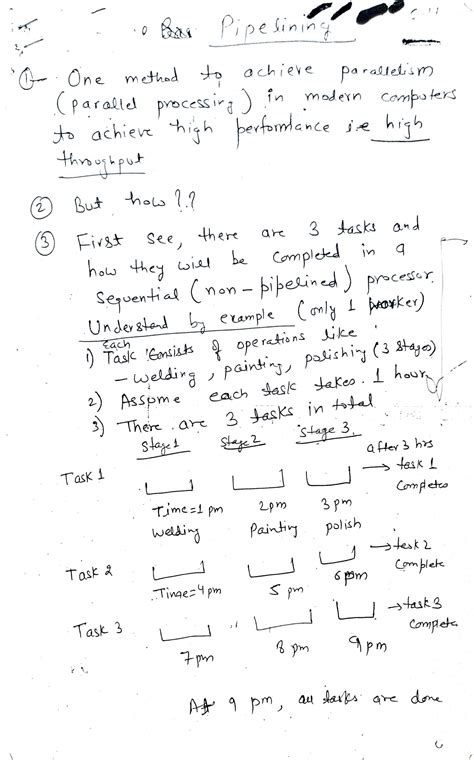 Pipelining
① One method to achieve parallelism
(parallel processing) in modern computers
to achieve high performance ie high
throughput
② But how ??
③ First see, there are 3 tasks and
how they will be completed in a
sequential (non-pipelined) processor.
Understand by example (only 1 worker)
1) Each Task consists of operations like
- welding, painting, polishing (3 stages)
2) Assume each task takes 1 hour
3) There are 3 tasks in total
Stage 1 Stage 2 Stage 3
Task 1 after 3 hrs → task 1 completes
Time=1 pm 2pm 3 pm
welding Painting polish
Task 2 → task 2 complete
Time=4pm 5 pm 6pm
Task 3 → task 3 complete
7pm 8 pm 9 pm
At 9 pm, all tasks are done